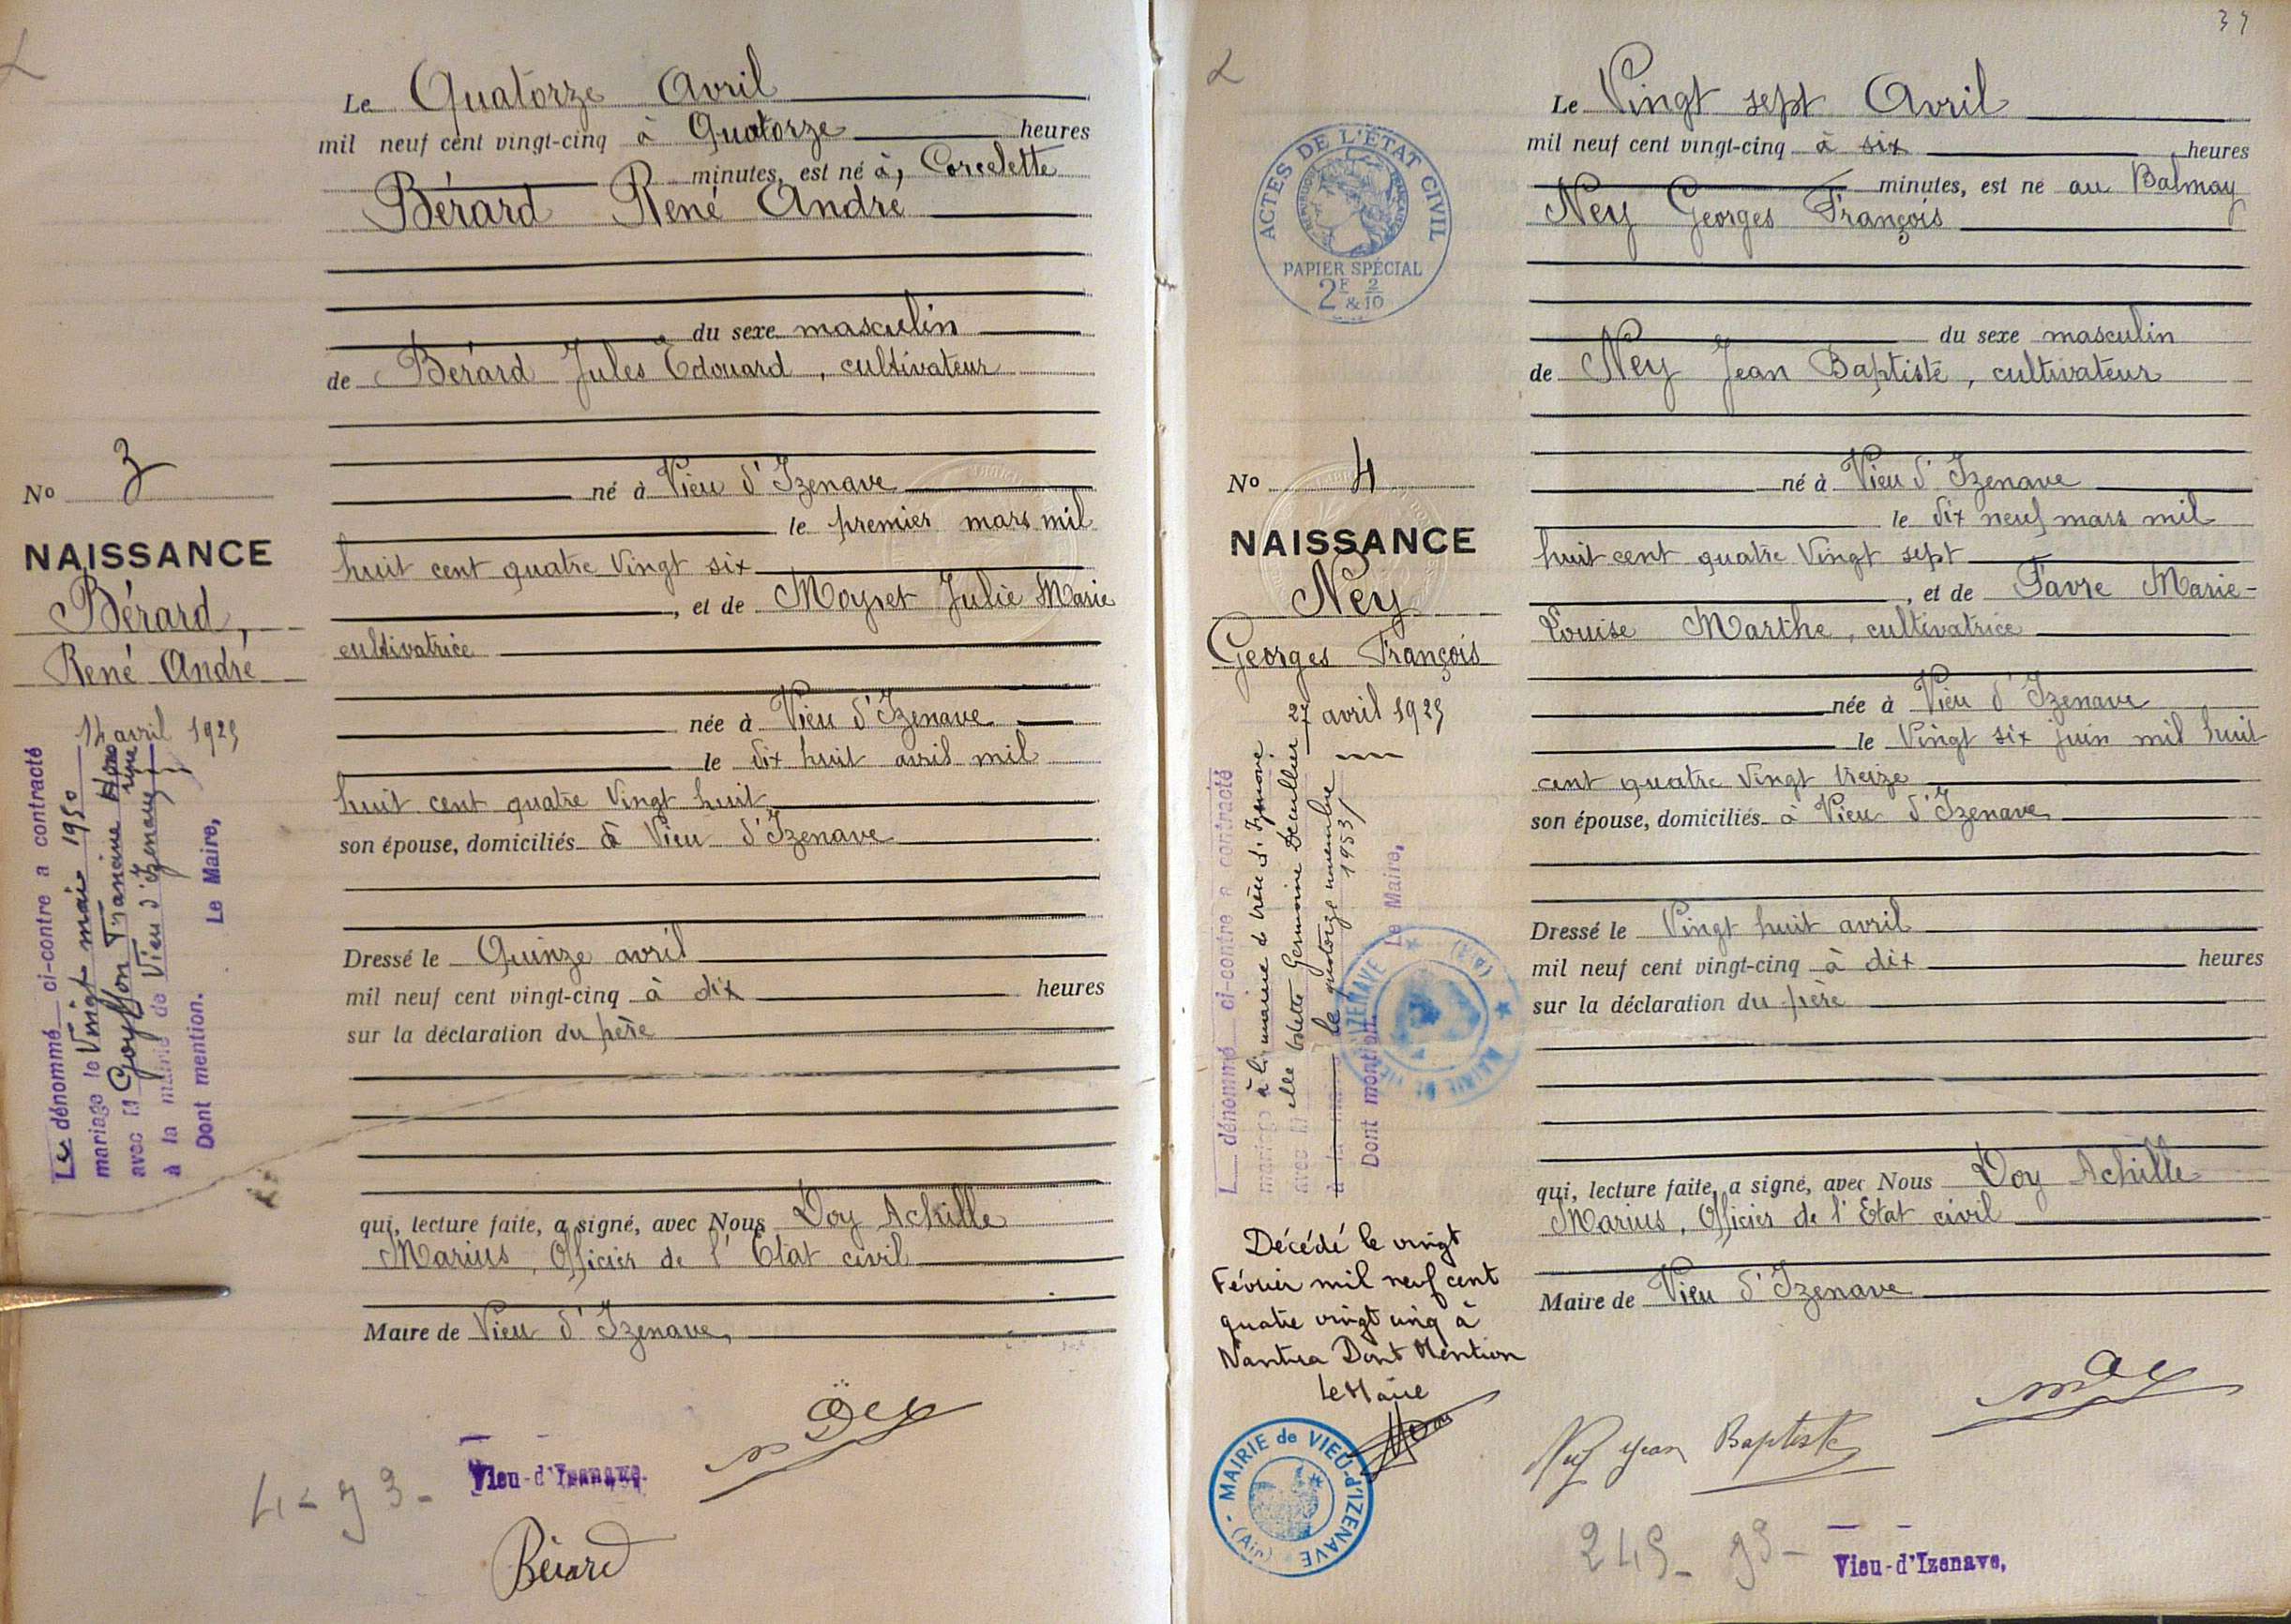 Le Quatorze Avril
mil neuf cent vingt-cinq à Quatorze heures
minutes, est né à, Corcelette
Bérard René André
du sexe masculin
de Bérard Jules Edouard, cultivateur
né à Vieu d'Izenave
le premier mars mil
huit cent quatre Vingt six
, et de Moyret Julie Marie
cultivatrice
née à Vieu d'Izenave
le dix huit avril mil
huit cent quatre Vingt huit
son épouse, domiciliés à Vieu d'Izenave
Dressé le Quinze avril
mil neuf cent vingt-cinq à dix heures
sur la déclaration du père
qui, lecture faite, a signé, avec Nous Doy Achille
Marius, Officier de l'Etat civil
Maire de Vieu d'Izenave,
Vieu-d'Izenave.
Bérard
No 3
NAISSANCE
Bérard,
René André
14 avril 1925
Le dénommé ci-contre a contracté
mariage le Vingt mai 1950
avec M Goyffon Francine
à la mairie de Vieu d'Izenave
Dont mention. Le Maire,
39
Le Vingt sept Avril
mil neuf cent vingt-cinq à six heures
minutes, est né au Balmay
Ney Georges François
du sexe masculin
de Ney Jean Baptiste, cultivateur
né à Vieu d'Izenave
le dix neuf mars mil
huit cent quatre Vingt sept
, et de Favre Marie-
Louise Marthe, cultivatrice
née à Vieu d'Izenave
le Vingt six juin mil huit
cent quatre Vingt treize
son épouse, domiciliés à Vieu d'Izenave
Dressé le Vingt huit avril
mil neuf cent vingt-cinq à dix heures
sur la déclaration du père
qui, lecture faite, a signé, avec Nous Doy Achille
Marius, Officier de l'Etat civil
Maire de Vieu d'Izenave
Ney Jean Baptiste
Vieu-d'Izenave,
ACTES DE L'ÉTAT CIVIL
PAPIER SPÉCIAL
2F & 2/10
No 4
NAISSANCE
Ney
Georges François
27 avril 1925
L dénommé ci-contre a contracté
mariage à la mairie d
avec M elle Odette Germaine
à la mairie le quatorze novembre
1953/
Dont mention. Le Maire,
Décédé le vingt
Février mil neuf cent
quatre vingt cinq à
Nantua Dont Mention
Le Maire
MAIRIE de VIEU-d'IZENAVE
(Ain)